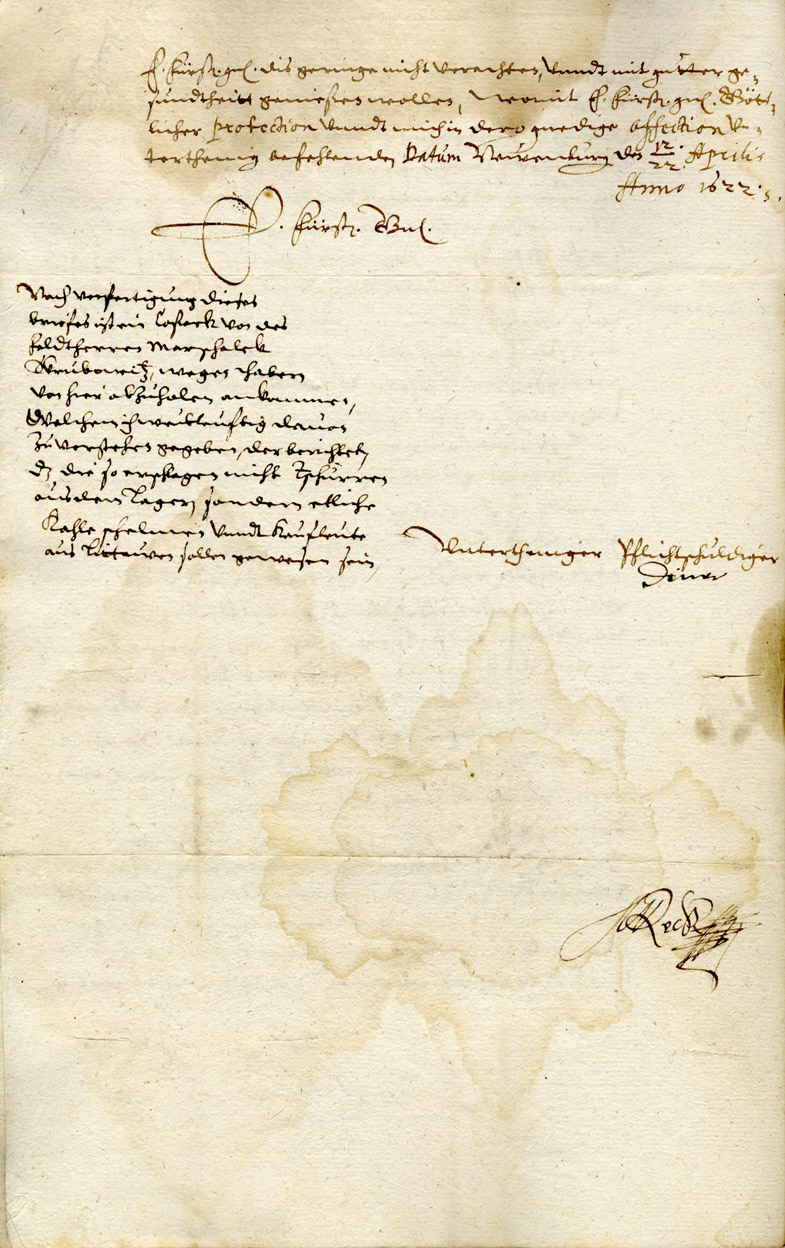 E. Fürstl. gnl. dis geringe nicht verachten, vundt mit gutter ge-
sundtheitt genießen wollen, womit E. Fürstl. gnl. Gött-
licher protection vundt mich in dero gnedige affection vn-
terthenig befehlende, Datum Neuwenburg den 12/22. Aprilis
Anno 1622.
E. Fürstl. Gnl.
Nach verfertigung dieses
briefes ist ein Cosack von des
feldtherren Marschalck
wegen haben
von hier abzuholen ankommen,
Welchem ich weitleuftig dauon
zu verstehen gegeben, der berichtet,
dz die so erschlagen nicht
aus dem Lager, sondern etliche
Kahle schelmen vundt Kaufleute
aus Littauwen sollen gewesen sein,
Vntertheniger Pflichtschuldiger
Diener